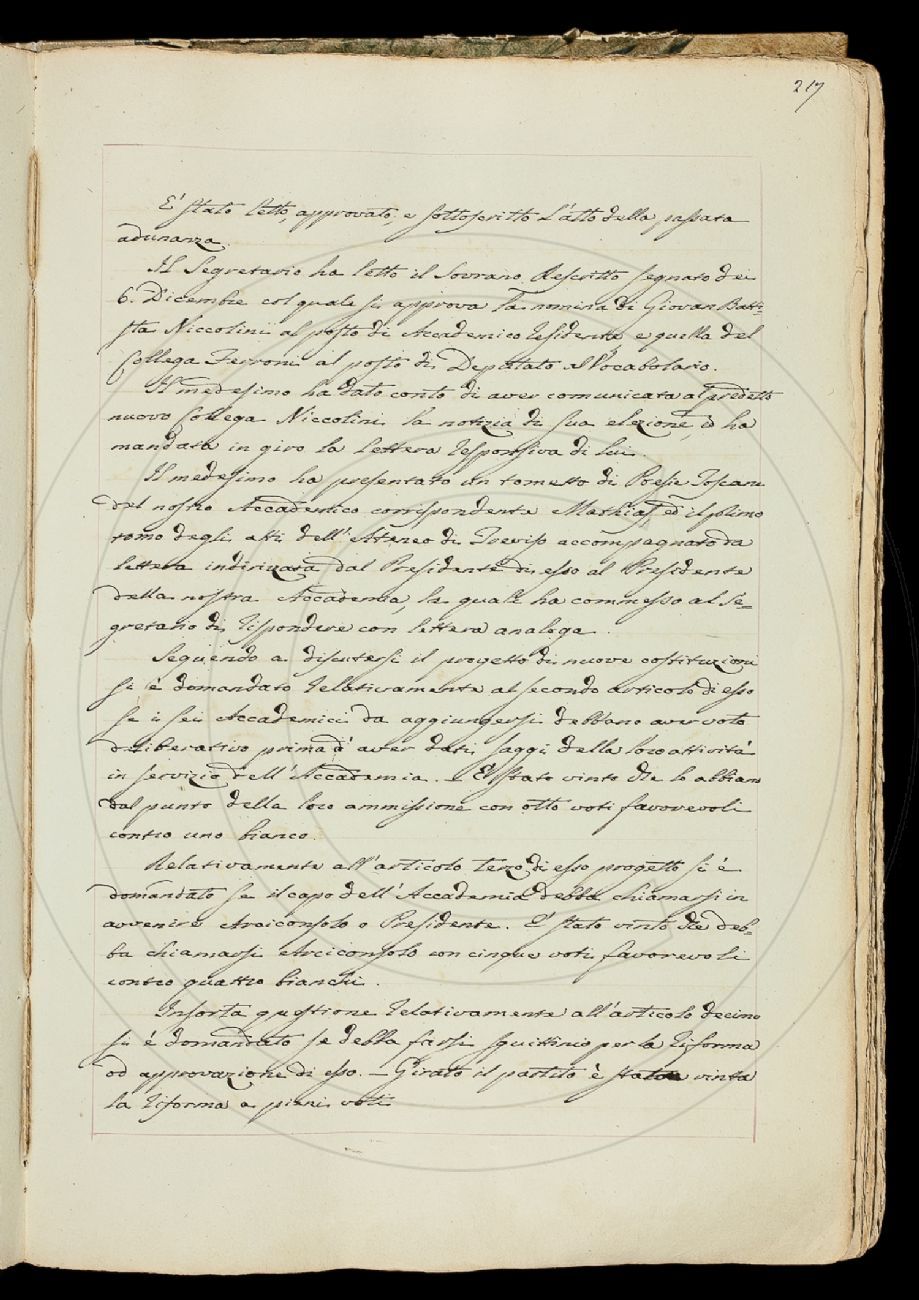 217
E' stato letto, approvato, e sottoscritto l'atto della passata
adunanza.
Il Segretario ha letto il Sovrano Rescritto segnato dei
6. Dicembre col quale si approva la nomina di Giovan Batti=
sta Niccolini al posto di Accademico residente e quella del
Collega Ferroni al posto di Deputato al Vocabolario.
Il medesimo ha dato conto di aver comunicata al predetto
nuovo Collega Niccolini la notizia di sua elezione, ed ha
mandata in giro la lettera responsiva di lui.
Il medesimo ha presentato un tometto di Poesie Toscane
del nostro Accademico corrispondente Mathias, ed il primo
tomo degli atti dell'Ateneo di Treviso accompagnato da
lettera indirizzata dal Presidente di esso al Presidente
della nostra Accademia, la quale ha commesso al Se=
gretario di rispondere con lettera analoga.
Seguendo a discutersi il progetto di nuove costituzioni
si è domandato relativamente al secondo articolo di esso
se i sei Accademici da aggiungersi debbano aver voto
deliberativo prima d'aver dati saggi della loro attività
in servizio dell'Accademia. - E' stato vinto che lo abbiano
dal punto della loro ammissione con otto voti favorevoli
contro uno bianco.
Relativamente all'articolo terzo di esso progetto si è
domandato se il capo dell'Accademia debba chiamarsi in
avvenire Arciconsolo o Presidente. E' stato vinto che deb=
ba chiamarsi Arciconsolo con cinque voti favorevoli
contro quattro bianchi.
Insorta questione relativamente all'articolo decimo
si è domandato se debba farsi squittinio per la riforma
od approvazione di esso. - Girato il partito è stata vinta
la riforma a pieni voti